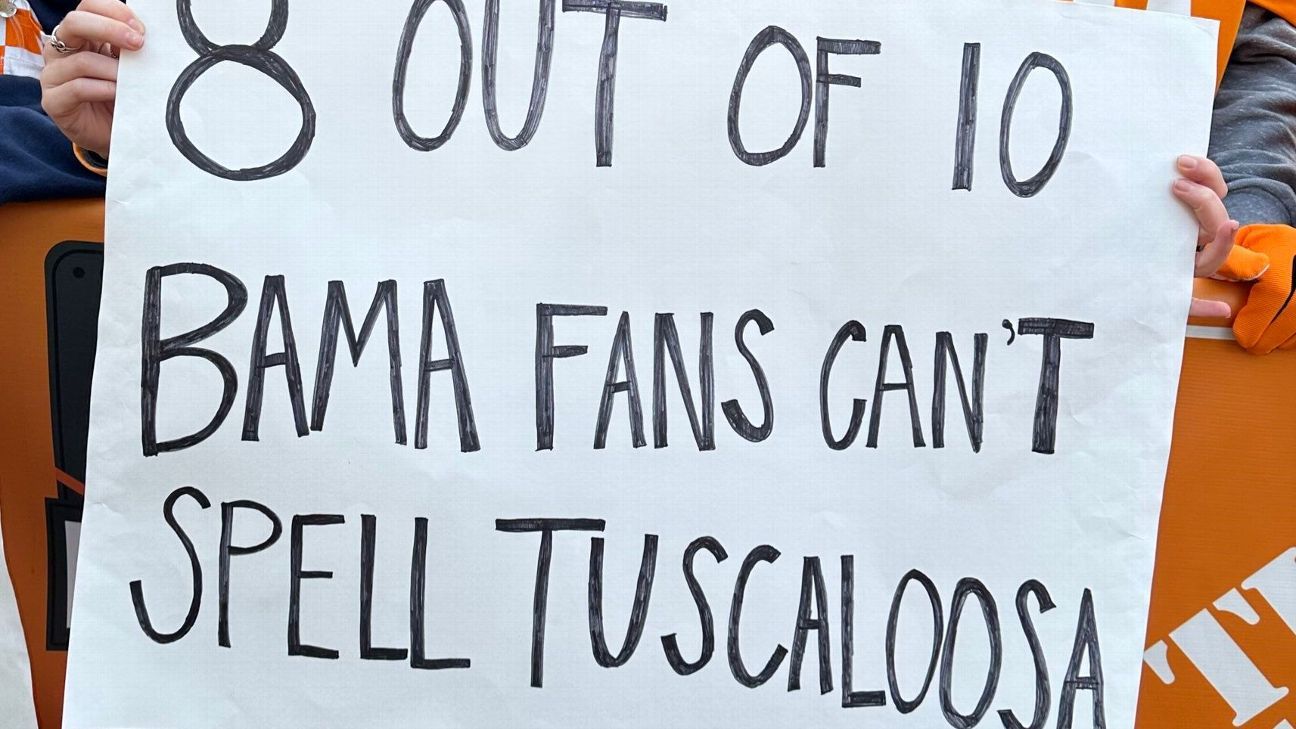 8 OUT OF 10
BAMA FANS CAN'T
SPELL TUSCALOOSA